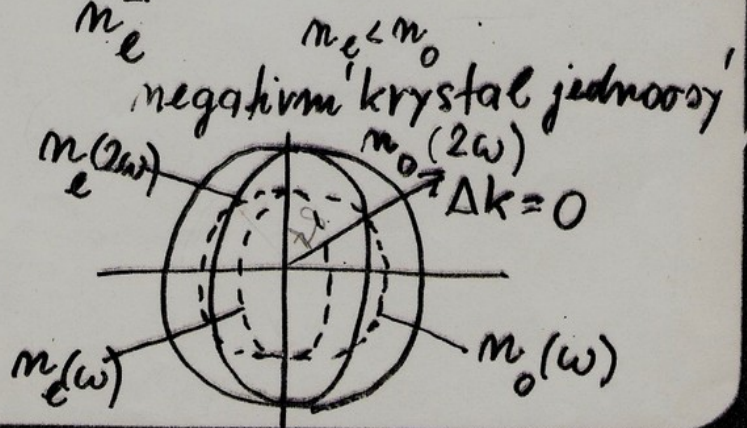 n_e
n_e < n_o
negativní krystal jednoosý
n_e(2ω) n_o(2ω)
Δk = 0
n_e(ω) n_o(ω)